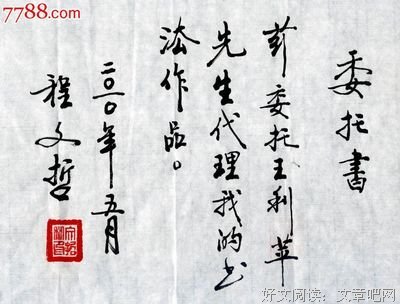 7788.com
委托书
兹委托王利苹
先生代理我的书
法作品。
二〇一〇年五月
程文哲
好文阅读：文章吧网